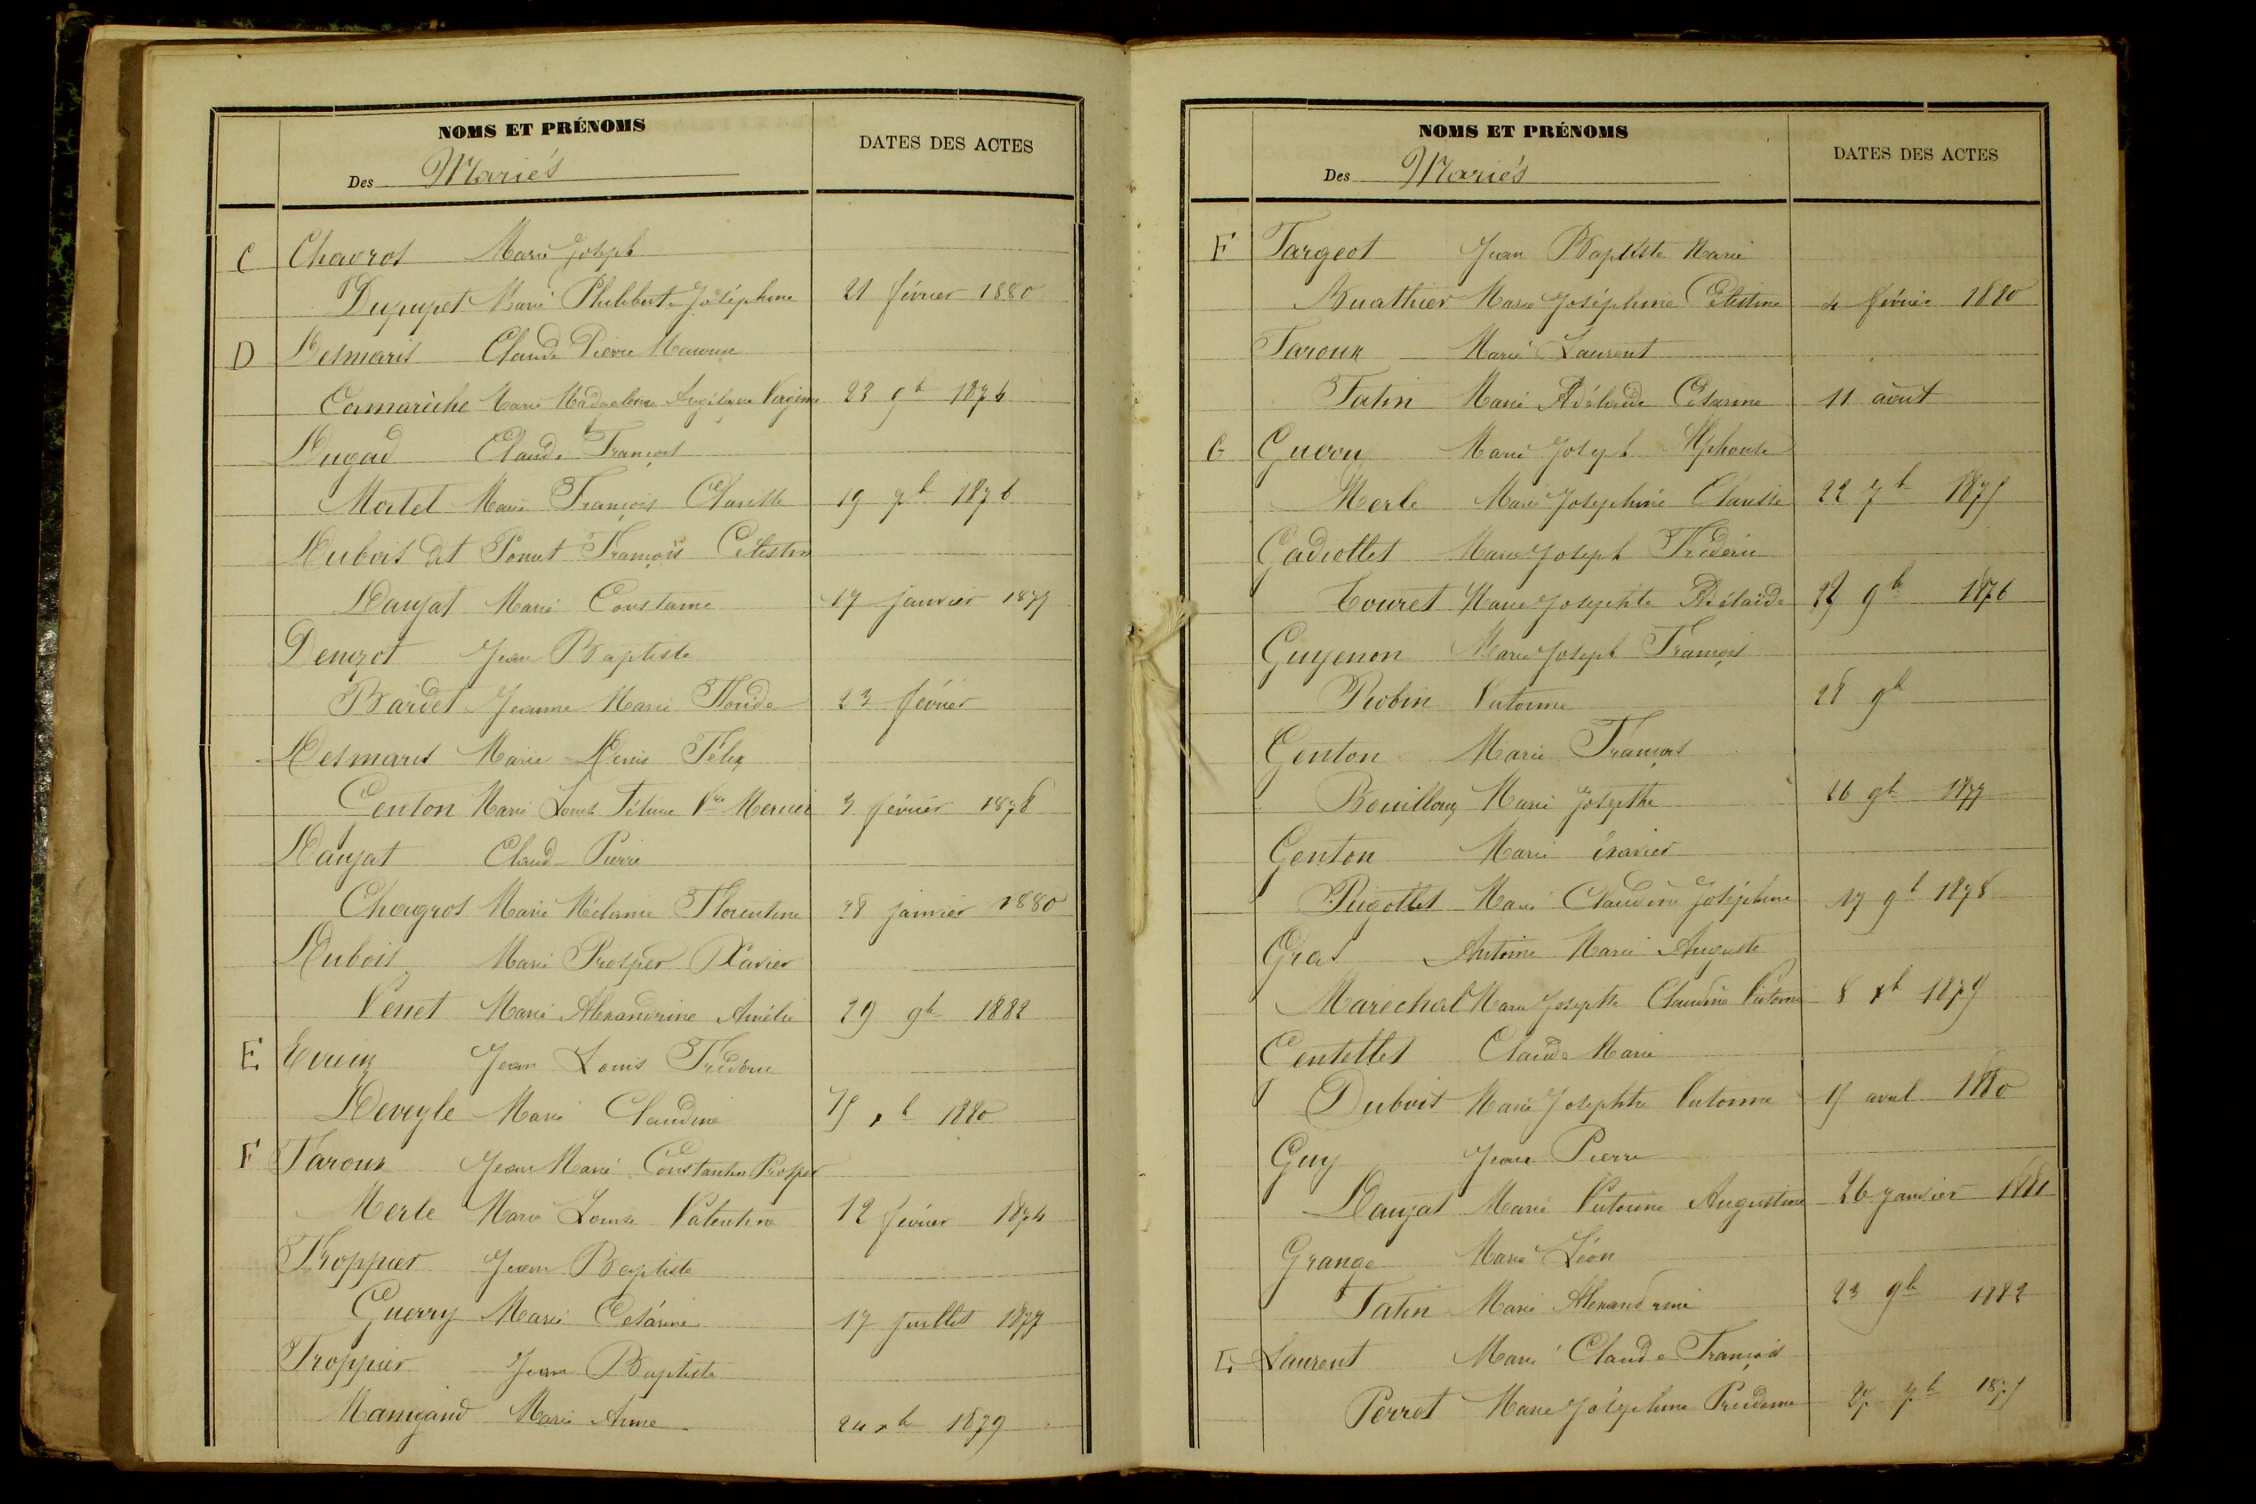 NOMS ET PRÉNOMS
Des Mariés
DATES DES ACTES
C Chavrot Marie Joseph
Dupupet Marie Philiberte Joséphine 21 février 1880
D Desmaris Claude Pierre
Camariche Marie Magdeleine Virginie 23 9b 1874
Dugad Claude François
Martel Marie François Clarisse 19 7b 1876
Dubois dit Ponut François Célestin
Daujat Marie Constance 17 janvier 1877
Denizot Jean Baptiste
Bardet Jeanne Marie 23 février
Desmaris Marie Denis Félix
Genton Marie Louise Vve Mercier 3 février 1878
Daujat Claude Pierre
Chagrot Marie Mélanie Florentine 28 janvier 1880
Dubois Marie Prosper Xavier
Venet Marie Alexandrine Amélie 29 9b 1882
E Jean Louis Frédéric
Deveyle Marie Claudine 15 xb 1880
F Faroux Jean Marie Constantin Prosper
Merle Marie Louise Valentine 12 février 1874
Froppier Jean Baptiste
Guerry Marie Césarine 17 juillet 1877
Froppier Jean Baptiste
Manigand Marie Anne 24 xb 1879
NOMS ET PRÉNOMS
Des Mariés
DATES DES ACTES
F Fargeot Jean Baptiste Marie
Buathier Marie Joséphine Célestine 4 février 1880
Faroux Marie Laurent
Tatin Marie Adélaïde Césarine 11 août
G Marie Joseph Alphonse
Merle Marie Joséphine Clarisse 22 7b 1875
Gadiollet Marie Joseph Frédéric
Touret Marie Josephte Adélaïde 9b 1876
Guyenon Marie Joseph François
Robin Victorine 28 9b
Genton Marie François
Bouilloux Marie Josephte 26 9b 1877
Genton Marie Xavier
Pugottet Marie Claudine Joséphine 17 9b 1878
Gras Antoine Marie Auguste
Maréchal Marie Josephte Claudine Victorine 8 xb 1879
Centellet Claude Marie
Dubois Marie Josephte Victorine 15 avril 1880
Guy Jean Pierre
Daujat Marie Victorine Augustine 26 janvier 1881
Grange Marie Léon
Tatin Marie Alexandrine 23 9b 1882
L Laurent Marie Claude François
Perret Marie Joséphine 27 7b 1875